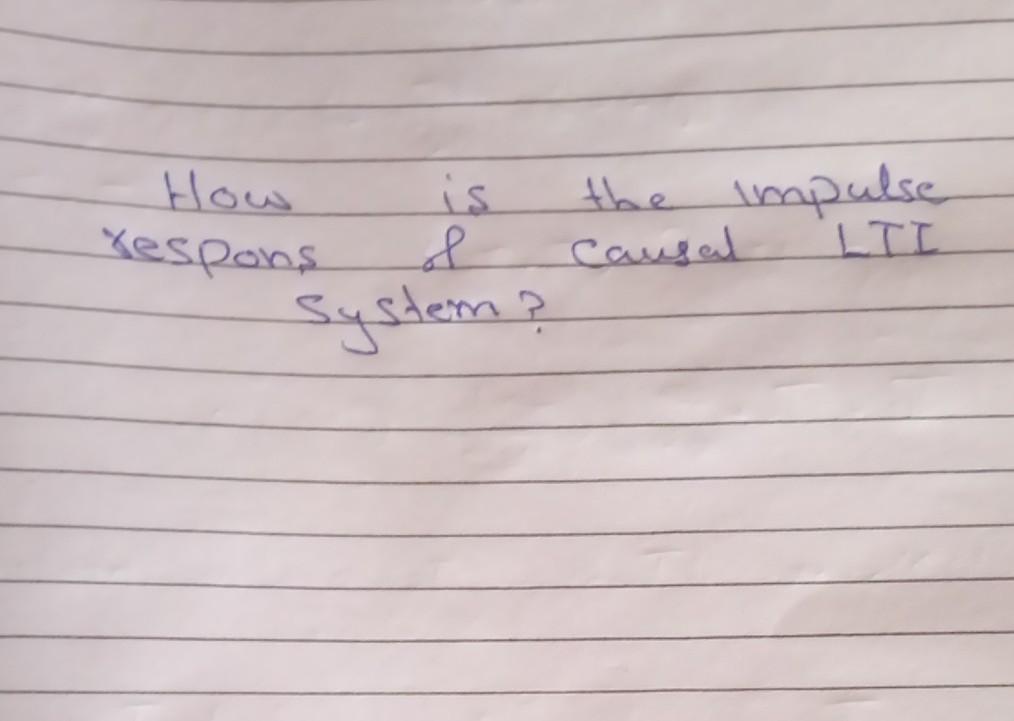 How is the impulse
respons of causal LTI
system?